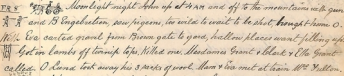 Moonlight night John up at 4 AM and off to the mountains with gun
and B Engebretson, saw pigeons, too wild to wait to be shot, brought home O.
Eva carted grant from Brown gate to yard, hallow places want filling up
Got on lambs off turnip tops, Killed one. Mesdames Grant & Clark & Ella Grant
called. O Lund took away his 3 sacks of wool. Mara & Eva met at train Mrs